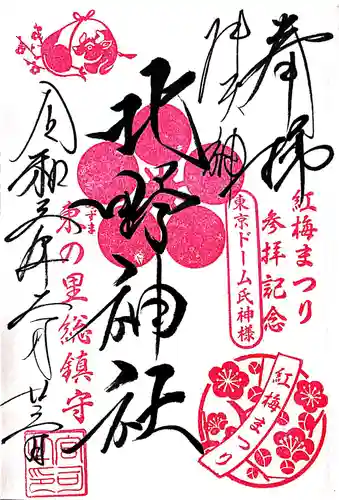 奉拝
紅梅まつり
参拝記念
牛天神
北野神社
東京ドーム氏神様
紅梅まつり
あずま
東の里総鎮守
令和五年二月廿三日